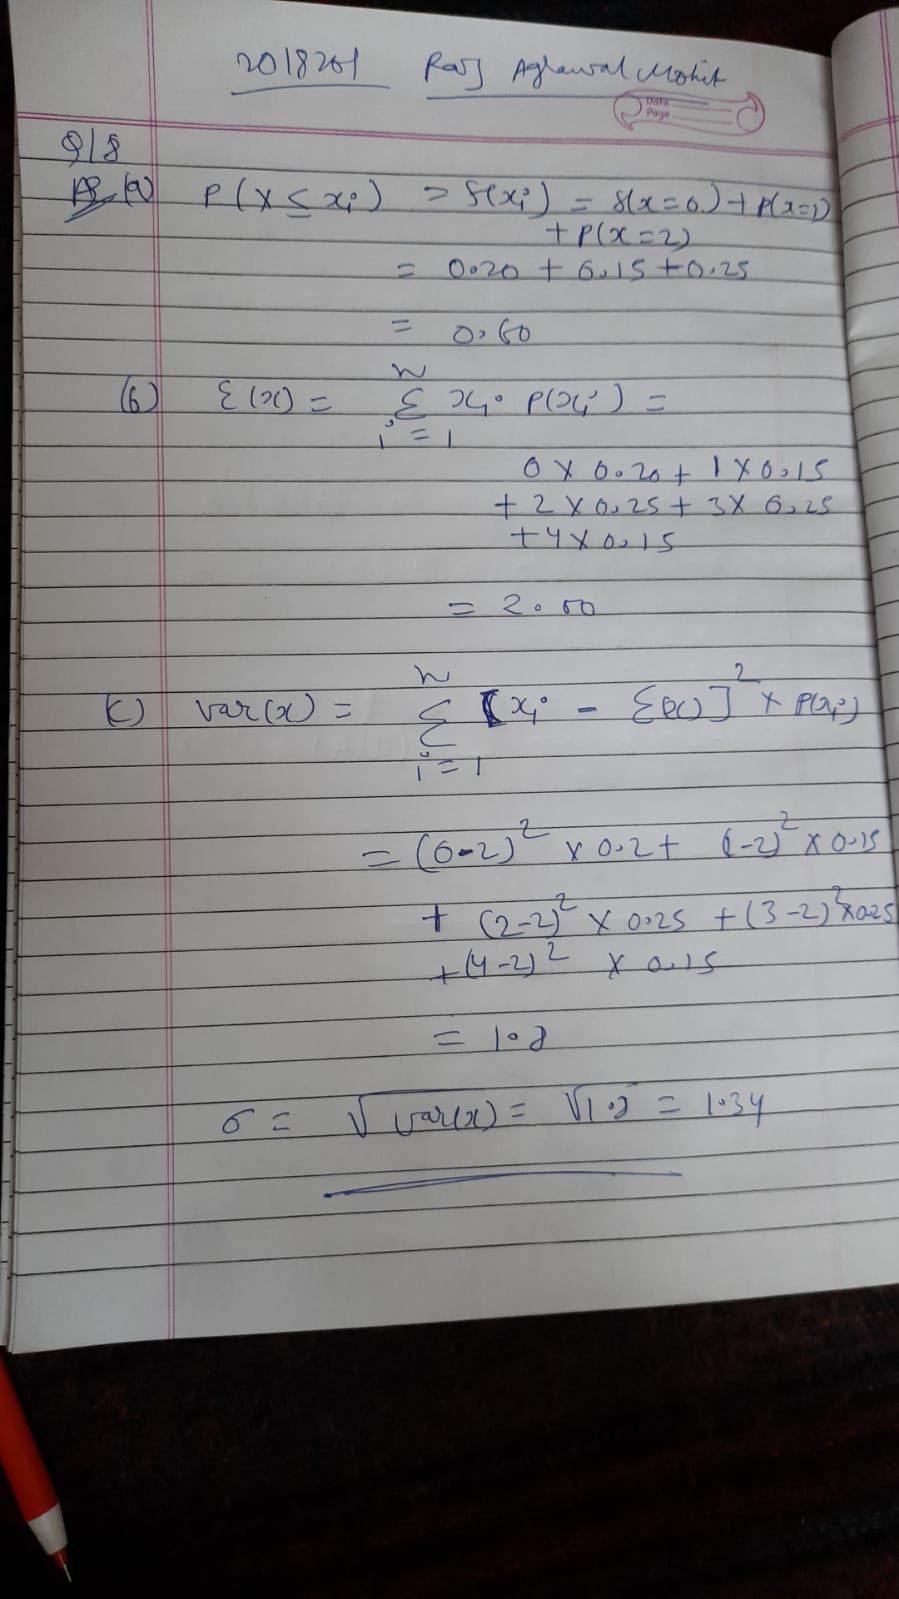 2018201 Raj Agrawal Mohit
Date
Page
Q18
(a) P(X ≤ xi) = f(xi) = f(x=0) + P(x=1)
+ P(x=2)
= 0.20 + 0.15 + 0.25
= 0.60
(b) Σ(x) = n Σ i=1 xi P(xi) =
0 × 0.20 + 1 × 0.15
+ 2 × 0.25 + 3 × 0.25
+ 4 × 0.15
= 2.00
(c) var(x) = n Σ i=1 [xi - Σ(x)]² × P(xi)
= (0-2)² × 0.2 + (-2)² × 0.15
+ (2-2)² × 0.25 + (3-2)² × 0.25
+ (4-2)² × 0.15
= 1.8
σ = √var(x) = √1.8 = 1.34